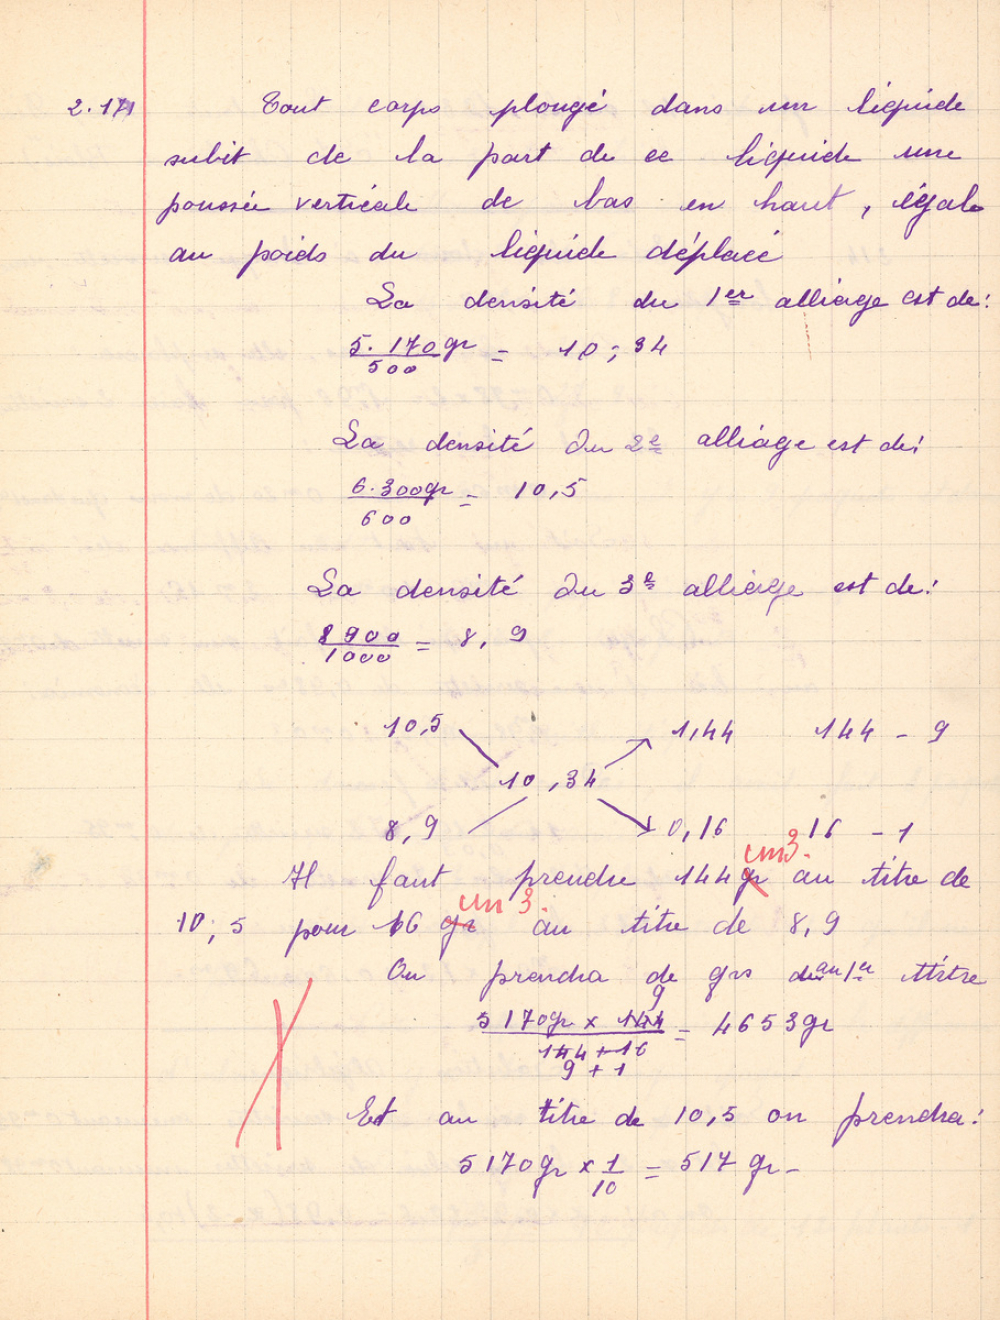 2.171 Tout corps plongé dans un liquide
subit de la part de ce liquide une
poussée verticale de bas en haut, égale
au poids du liquide déplacé
La densité du 1er alliage est de:
5.170gr / 500 = 10;34
La densité du 2e alliage est de:
6.300gr / 600 = 10,5
La densité du 3e alliage est de:
8900 / 1000 = 8,9
10,5 1,44 144 - 9
10,34
8,9 0,16 16 - 1
cm3.
Il faut prendre 144 gr au titre de
cm3.
10;5 pour 16 gr au titre de 8,9
On prendra de grs au 1er titre
9
5170gr x 144 / 144 + 16 = 4653gr
9 + 1
Et au titre de 10,5 on prendra:
5170gr x 1/10 = 517 gr -